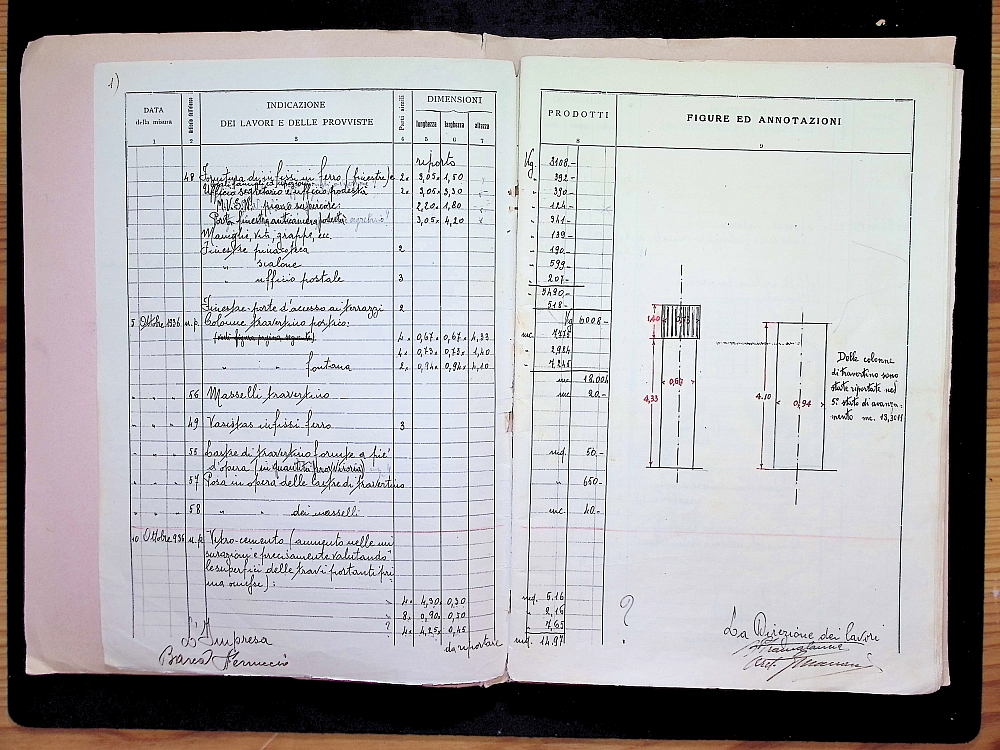 1)
DATA della misura | Articolo dell'elenco | INDICAZIONE DEI LAVORI E DELLE PROVVISTE | Parti simili | DIMENSIONI lunghezza larghezza altezza | PRODOTTI | FIGURE ED ANNOTAZIONI
1 2 3 4 5 6 7 8 9
riporto Kg. 3108.-
48 Fornitura di infissi in ferro (finestre) e 2 × 3,05 × 1,50 " 392.-
Ufficio segretario e ufficio podestà 2 × 3,05 × 3,30 " 390.-
M.V.S.N. piano superiore: 2,20 × 1,80 " 124.-
Porta finestra anticamera podestà 3,05 × 4,20 " 341.-
Maniglie, viti, grappe, ecc. " 139.-
Finestre pinacoteca 2 " 190.-
" scalone " 599.-
" ufficio postale 3 " 207.-
" 5490.-
Finestre-porte d'accesso ai terrazzi 2 " 518.-
5 Ottobre 1936 n.p. Colonne travertino portico: Kg 6008.-
(vedi figura pagina seguente) 4 × 0,67 × 0,67 × 4,33 mc.
4 × 0,73 × 0,73 × 1,40 "
" " fontana 2 × 0,94 × 0,94 × 4,10 " 7.245
mc. 18.004
56 Masselli travertino mc 20.-
" " " 49 Vasistas infissi ferro 3
" " " 55 Lastre di travertino fornite a piè mq. 50.-
d'opera (in quantità provvisoria)
" " " 57 Posa in opera delle lastre di travertino " 650.-
" " " 58 " " dei masselli mc. 40.-
10 Ottobre 936 n.p. Vetro-cemento (aumento nelle mi
surazioni e precisamente valutando
le superfici delle travi portanti pri
ma omesse):
4 × 4,30 × 0,30 mq. 5.16
8 × 0,90 × 0,30 " 2,16
? 4 × 4,25 × 0,45 " 7,65
da riportare mq. 14.97
L'Impresa
Barca Ferruccio
1,40
0,67
4,33
4.10
0,94
Dalle colonne
di travertino sono
state riportate nel
5° stato di avanza-
mento mc. 13,3011
?
La Direzione dei lavori